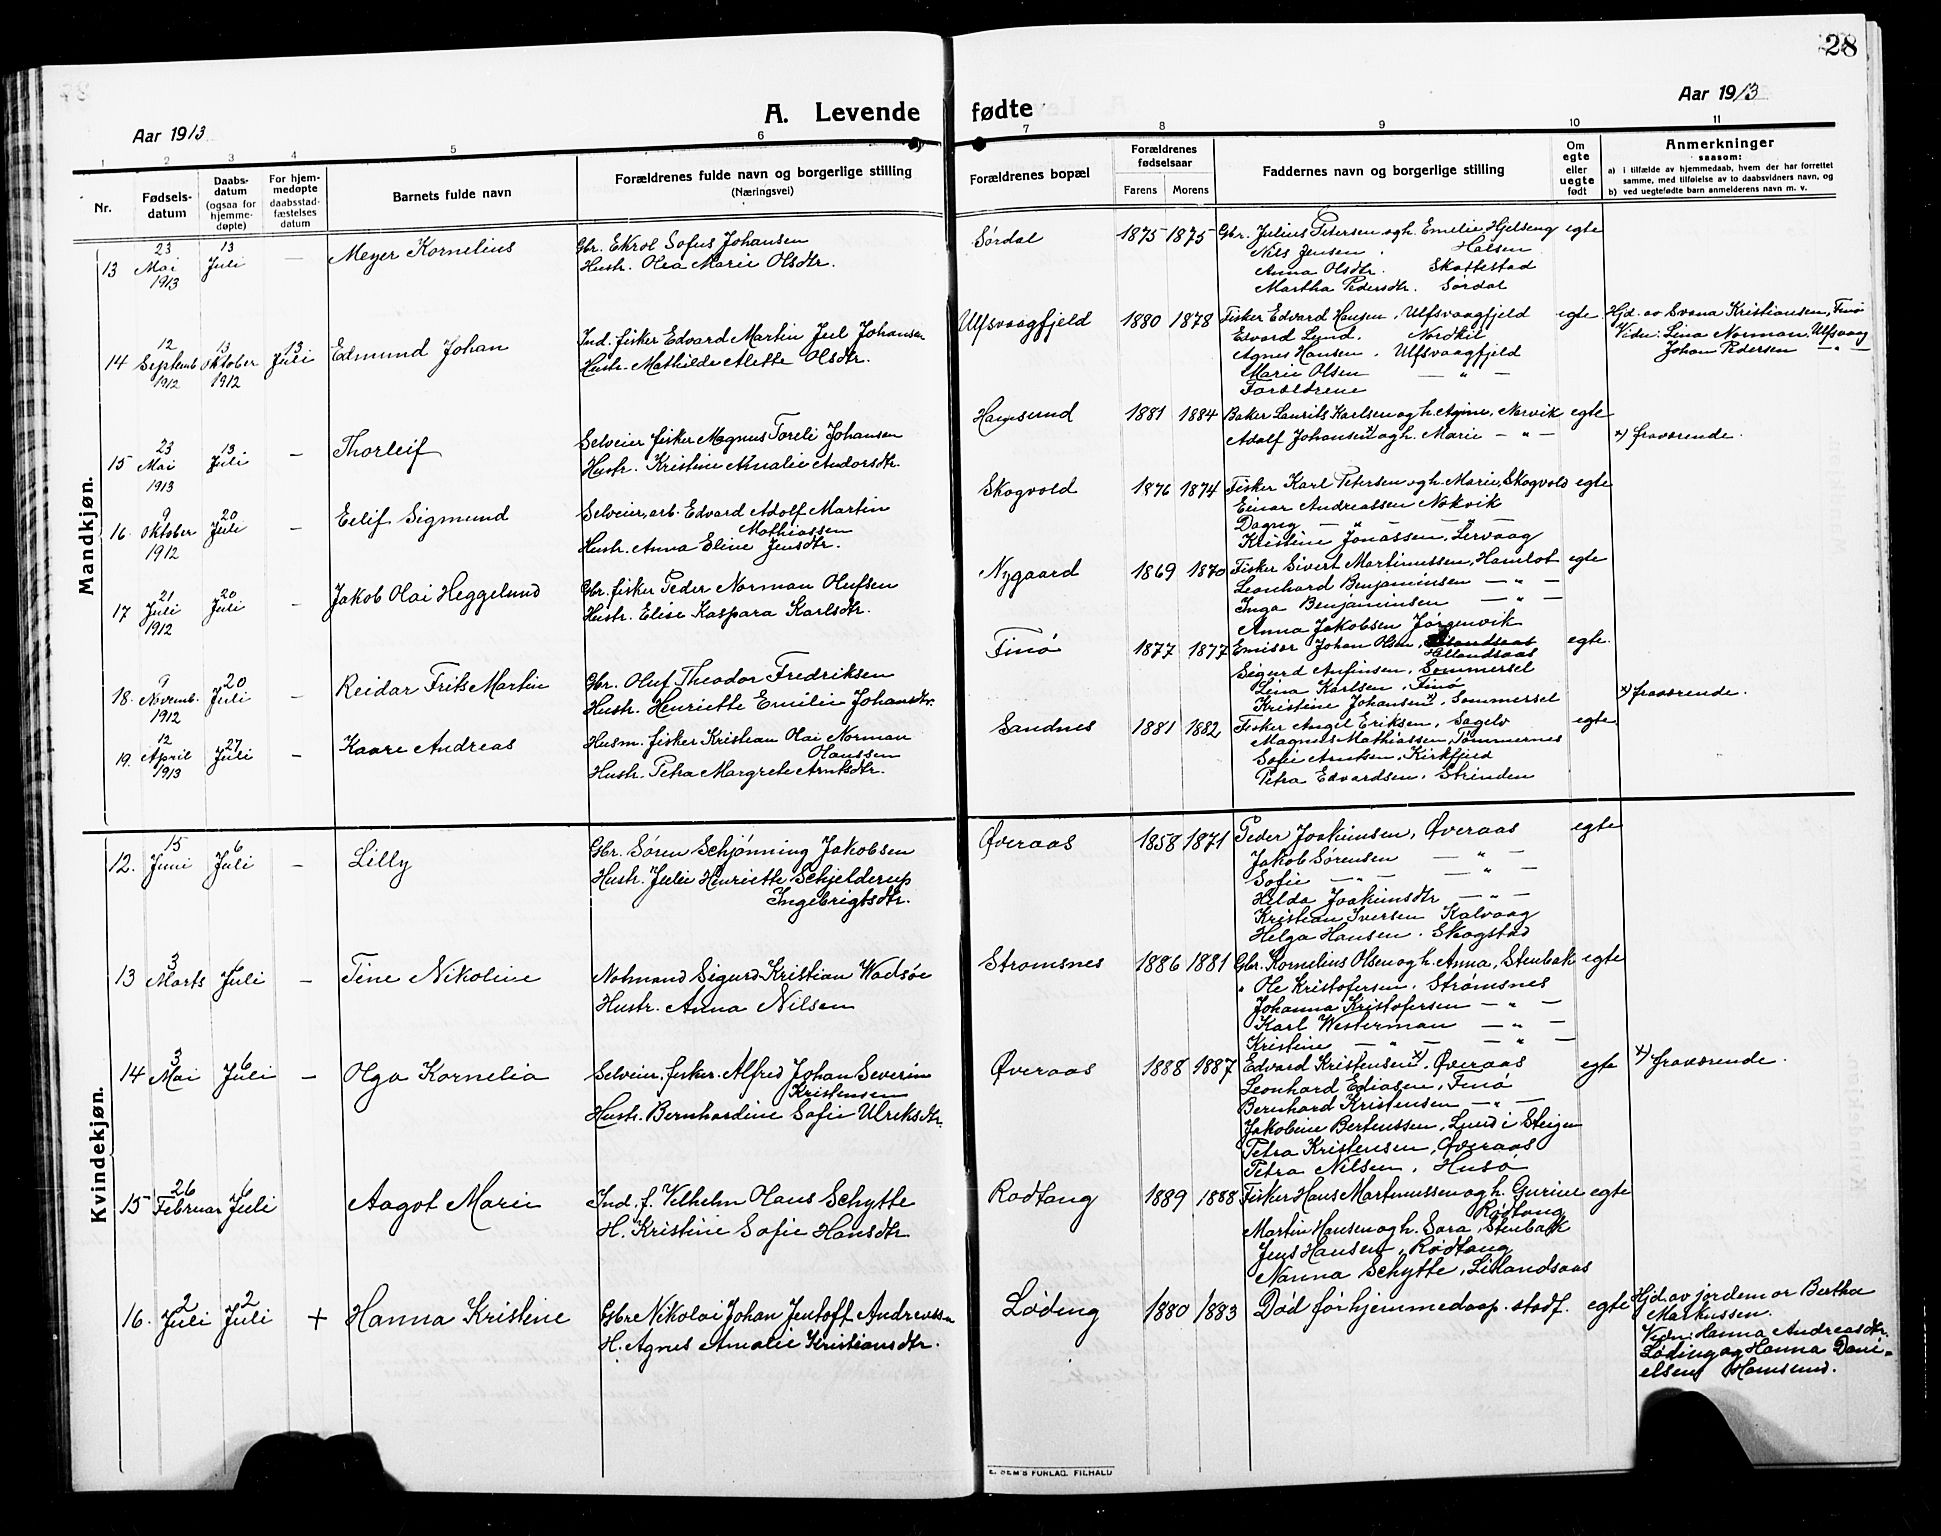 28
A. Levende fødte
Aar 1913
Aar 1913
1 2 3 4 5 6 7 8 9 10 11
Nr.
Fødsels-
datum
Daabs-
datum
(ogsaa for
hjemme-
døpte)
For hjem-
medøpte
daabsstad-
fæstelses
datum
Barnets fulde navn
Forældrenes fulde navn og borgerlige stilling
(Næringsvei)
Forældrenes bopæl
Forældrenes
fødselsaar
Farens Morens
Faddernes navn og borgerlige stilling
Om
egte
eller
uegte
født
Anmerkninger
saasom:
a) i tilfælde av hjemmedaab, hvem der har forrettet
samme, med tilføielse av to daabsvidners navn, og
b) ved uegtefødte barn anmelderens navn m. v.
Mandkjøn.
13 23 Mai 1913 13 Juli — Meyer Kornelius
Gbr. Ekrol Sofus Johansen
Hustr. Olea Marie Olsdtr.
Sørdal 1875 1875
Gbr. Julius Petersen og h. Emelie Hjelseng egte
Nils Jensen. Halsen
Anna Olsdtr. Skottestad
Martha Pedersdtr. Sørdal
14 12 Septemb 1912 13 Oktober 1912 13 Juli Edmund Johan
Ind. fisker Edvard Martin Juel Johansen
Hustr. Mathilde Alette Olsdtr.
Ulfsvaagfjeld 1880 1878
Fisker Edvard Hansen, Ulfsvaagfjeld egte
Edvard Lund, Nordkil
Agnes Hansen, Ulfsvaagfjeld
Marie Olsen — " —
Forældrene
Hjd. av Svana Kristiansen, Finø
Vidn: Lina Norman, Ulfsvaag
Johan Pedersen — " —
15 23 Mai 1913 13 Juli — Thorleif
Selveier fisker Magnus Toreli Johansen
Hustr. Kristine Amalie Andorsdtr.
Hamsund 1881 1884
Baker Laurits Karlsen og h. Agine, Narvik egte
Adolf Johansen x) og h. Marie — " —
x) fraværende.
16 9 Oktober 1912 20 Juli — Eilif Sigmund
Selveier, arb. Edvard Adolf Martin
Mathiassen
Hustr. Anna Eline Jensdtr.
Skogvold 1876 1874
Fisker Karl Petersen og h. Marie, Skogvold egte
Einar Andreassen Nokvik
Dagny — " — — " —
Kristine Jonassen, Lervaag
17 21 Juli 1912 20 Juli — Jakob Olai Heggelund
Gbr. fisker Peder Norman Olufsen
Hustr. Elise Kaspara Karlsdtr.
Nygaard 1869 1870
Fisker Sivert Martinussen, Hamlot egte
Leonhard Benjaminsen — " —
Inga Benjaminsen — " —
Anna Jakobsen Jørgenvik
18. 9 Novemb. 1912 20 Juli — Reidar Frits Martin
Gbr. Oluf Theodor Fredriksen
Hustr. Henriette Emilie Johansdtr.
Finø 1877 1877
Emisær Johan Olsen, egte.
Sigurd Anfinsen, Sommersel
Lina Karlsen, Finø
Kristine Johansen x), Sommersel
x) fraværende.
19. 12 April 1913 27 Juli — Kaare Andreas
Husm. fisker Kristian Olai Norman
Hanssen
Hustr. Petra Margrete Arntsdtr.
Sandnes 1881 1882
Fisker Angel Eriksen, Sagelv egte
Magnus Mathiassen, Tømmernes
Sofie Arntsen, Kirkfjeld
Petra Edvardsen, Strinden
Kvindekjøn.
12. 15 Juni 6 Juli — Lilly
Gbr. Søren Schjønning Jakobsen
Hustr. Julie Henriette Schjelderup
Ingebrigtsdtr.
Øveraas 1858 1871
Peder Joakimsen, Øveraas egte
Jakob Sørensen — " —
Sofie — " — — " —
Hilda Joakimsdtr — " —
Kristian Iversen Kalvaag
Helga Hansen, Skogstad
13 3 Marts 6 Juli — Tine Nikoline
Notmand Sigurd Kristian Wadsøe
Hustr. Anna Nilsen
Strømsnes 1886 1881
Gbr. Kornelius Olsen og h. Anna, Stenbak egte
" Ole Kristofersen, Strømsnes
Johanna Kristofersen — " —
Karl Westerman — " —
Kristine — " — — " —
14 3 Mai 6 Juli — Olga Kornelia
Selveier, fisker. Alfred Johan Severin
Kristensen
Hustr. Bernhardine Sofie Ulriksdtr.
Øveraas 1888 1887
Edvard Kristensen x), Øveraas egte
Leonhard Ediasen, Finø
Bernhard Kristensen — " —
Jakobine Bertinussen, Lund i Steigen
Petra Kristensen, Øveraas
Petra Nilsen, Husø
x) fraværende.
15 26 Februar 6 Juli Aagot Marie
Ind. f. Vilhelm Hans Schytte
H. Kristine Sofie Hansdtr
Rødtang 1889 1888
Fisker Hans Martinussen og h. Gurine egte
Rødtang
Martin Hansen og h. Sara, Stenbak
Jens Hansen, Rødtang
Nanna Schytte, Lillandsaas
16. 2 Juli 2 Juli + Hanna Kristine
Gbr. Nikolai Johan Jentoft Andreassen
H. Agnes Amalie Kristiansdtr.
Løding 1880 1883
Død før hjemmedaap. stadf. egte
Hjd. av jordemor Bertha
Markussen.
Vidn: Hanna Andreasdtr.
Løding og Hanna Dani-
elsen Hamsund.
E. SEM'S FORLAG, FR.HALD